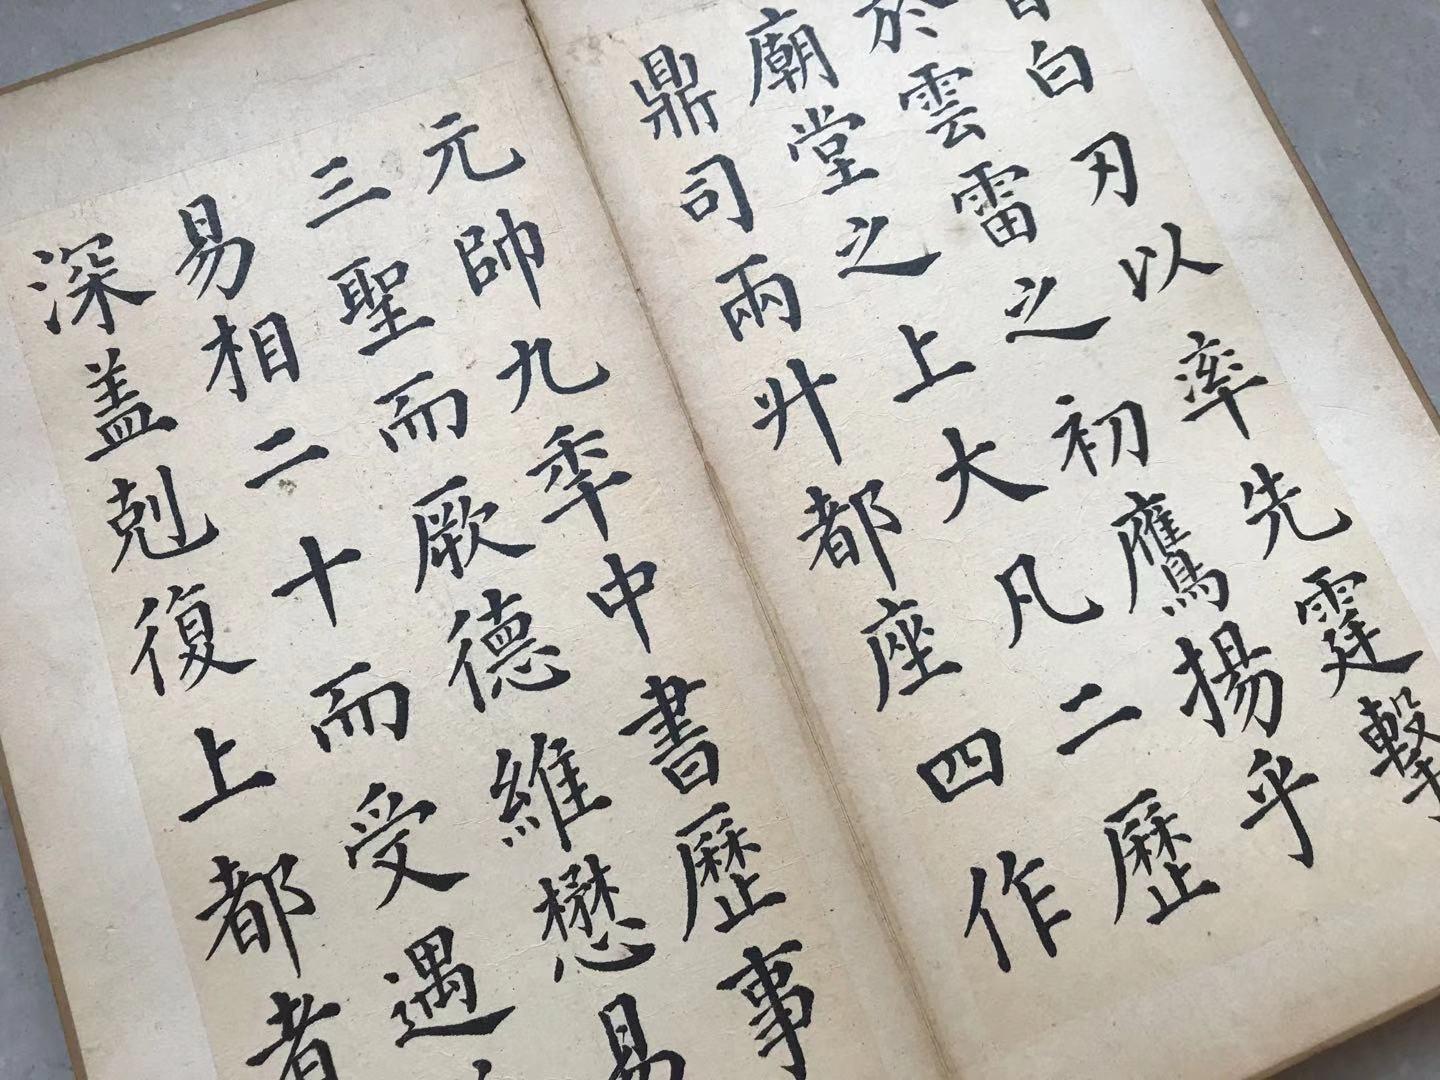 白刃以率先霆擊
於雲雷之初鷹揚乎
廟堂之上大凡二歷
鼎司兩升都座四作
元帥九秊中書歷事
三聖而厥德維懋易
易相二十而受遇
深盖剋復上都者